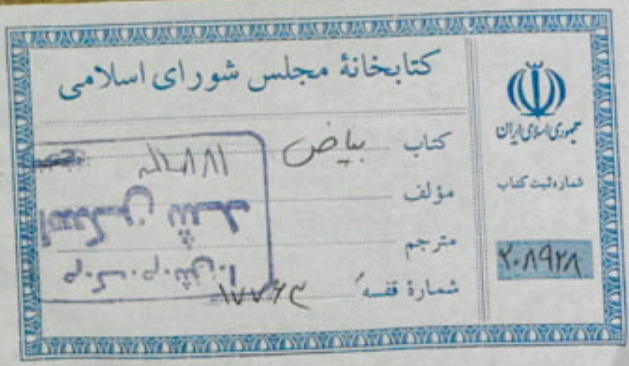 کتابخانهٔ مجلس شورای اسلامی
کتاب بیاض
مؤلف
مترجم
شمارهٔ قفسه ۱۷۷۶۳
جمهوری اسلامی ایران
شماره ثبت کتاب
۲۰۸۹۲۸
اسکن شد